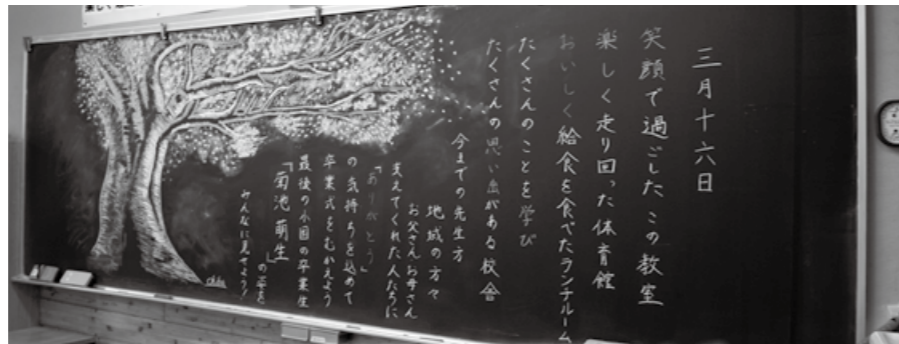 三月十六日
笑顔で過ごした この教室
楽しく走り回った体育館
おいしく給食を食べたランチルーム
たくさんのことを学び
たくさんの思い出がある校舎
今までの先生方
地域の方々
お父さんお母さん
支えてくれた人たちに
「ありがとう」
の気持ちを込めて
卒業式をむかえよう
最後の小国の卒業生
「菊池萌生」の姿を
みんなに見せよう!